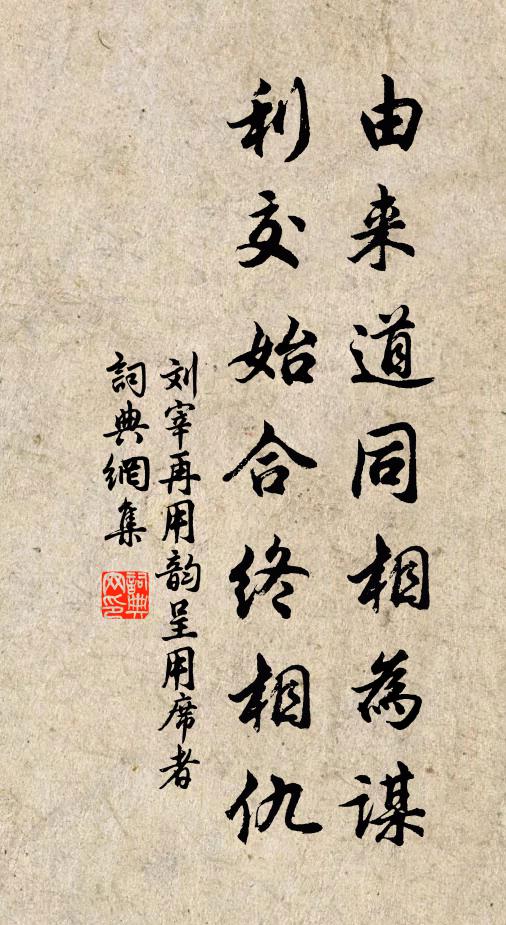 由来道同相為謀
利交始合终相仇
刘宰再用韵呈用席者
詞典網集
詞典網印